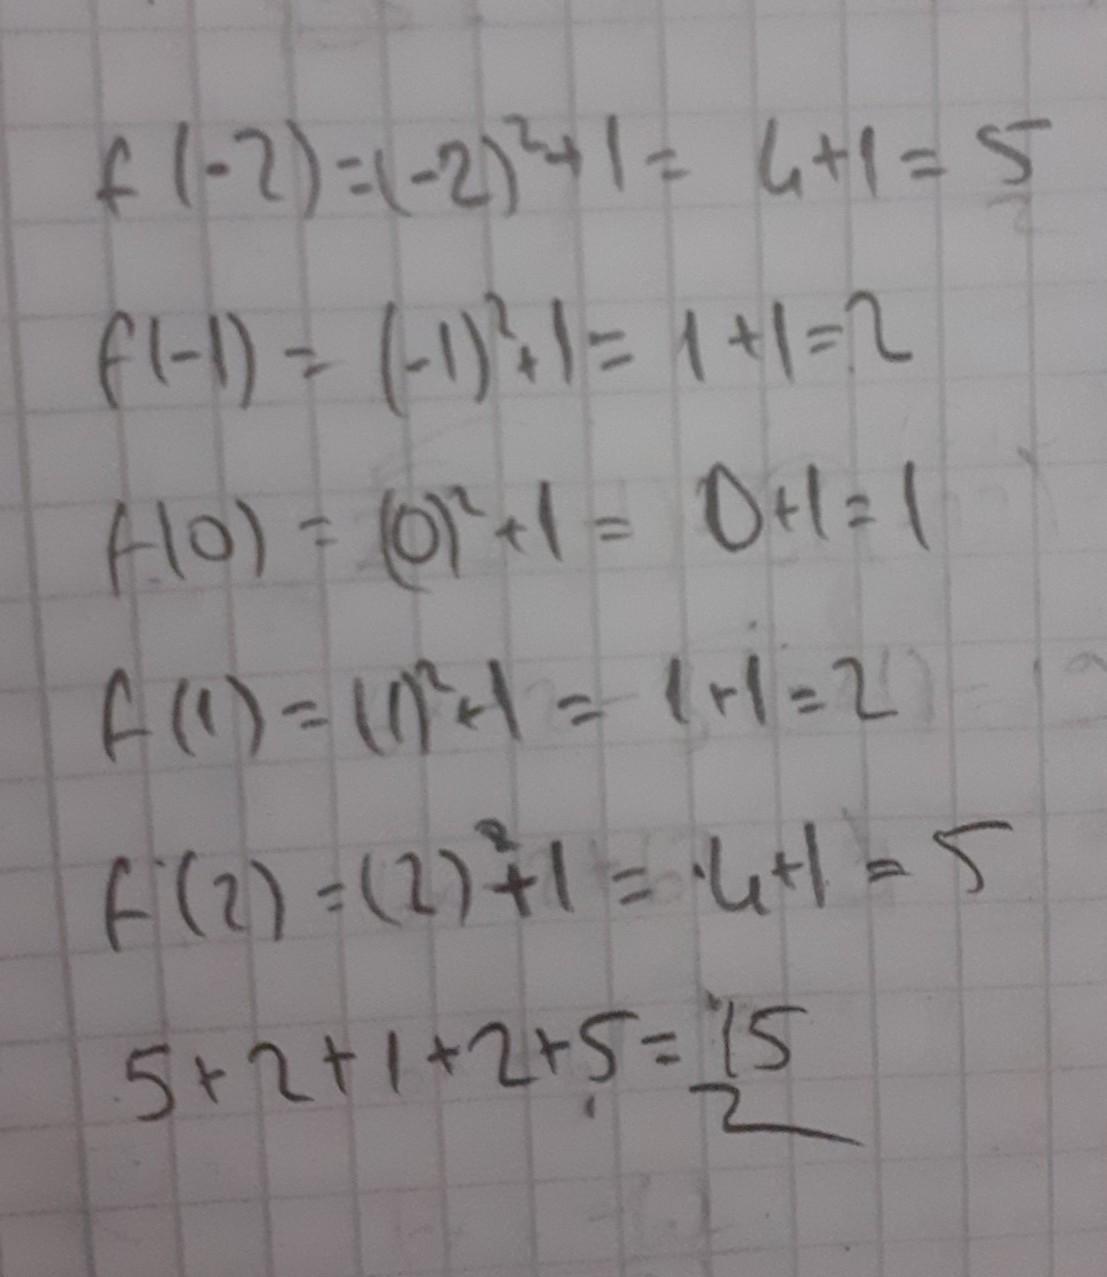 f(-2)=(-2)²+1= 4+1=5
f(-1) = (-1)²+1= 1+1=2
f(0) = (0)²+1= 0+1=1
f(1)=(1)²+1= 1+1=2
f(2)=(2)²+1=4+1=5
5+2+1+2+5=15